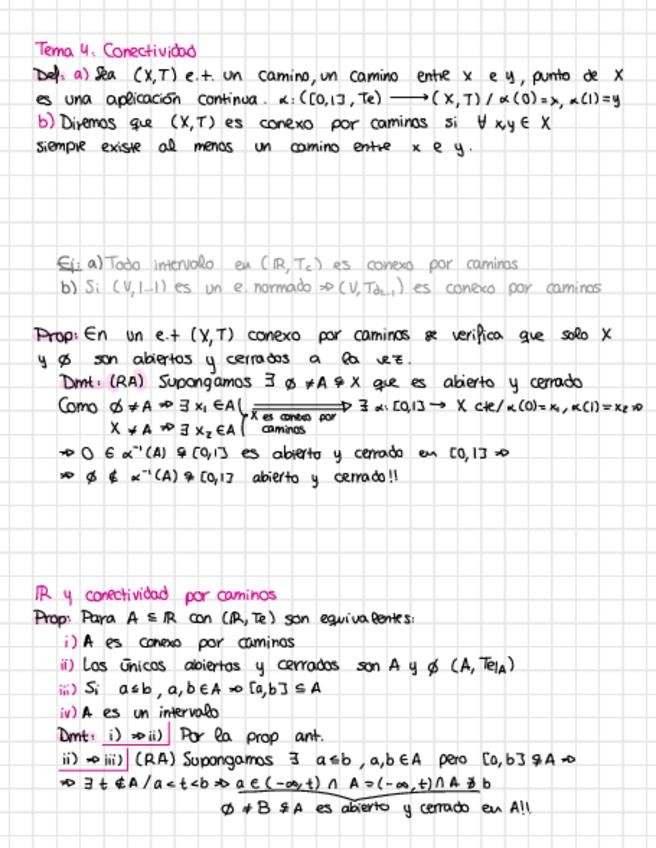 Tema 4. Conectividad
Def: a) Sea (X,T) e.t. un camino, un camino entre x e y, punto de X
es una aplicación continua. α: ([0,1], Te) ⟶ (X,T) / α(0)=x, α(1)=y
b) Diremos que (X,T) es conexo por caminos si ∀ x,y ∈ X
siempre existe al menos un camino entre x e y.
Ej: a) Todo intervalo en (ℝ, Te) es conexo por caminos
b) Si (V,‖·‖) es un e. normado ⇒ (V, T_d‖·‖) es conexo por caminos
Prop: En un e.t (X,T) conexo por caminos se verifica que solo X
y ∅ son abiertos y cerrados a la vez.
Dmt: (RA) Supongamos ∃ ∅ ≠ A ⊊ X que es abierto y cerrado
Como ∅ ≠ A ⇒ ∃ x₁ ∈ A ⟹ ∃ α: [0,1] → X cte/ α(0)=x₁, α(1)=x₂ ⇒
X es conexo por
X ≠ A ⇒ ∃ x₂ ∈ A caminos
⇒ 0 ∈ α⁻¹(A) ⊊ [0,1] es abierto y cerrado en [0,1] ⇒
⇒ ∅ ∉ α⁻¹(A) ⊊ [0,1] abierto y cerrado!!
ℝ y conectividad por caminos
Prop: Para A ⊆ ℝ con (ℝ, Te) son equivalentes:
i) A es conexo por caminos
ii) Los únicos abiertos y cerrados son A y ∅ (A, Te|A)
iii) Si a≤b, a,b ∈ A ⇒ [a,b] ⊆ A
iv) A es un intervalo
Dmt: i) ⇒ ii) Por la prop ant.
ii) ⇒ iii) (RA) Supongamos ∃ a≤b, a,b ∈ A pero [a,b] ⊈ A ⇒
⇒ ∃ t ∉ A / a<t<b ⇒ a ∈ (-∞,t) ∩ A = (-∞,t] ∩ A ∌ b
∅ ≠ B ⊊ A es abierto y cerrado en A!!